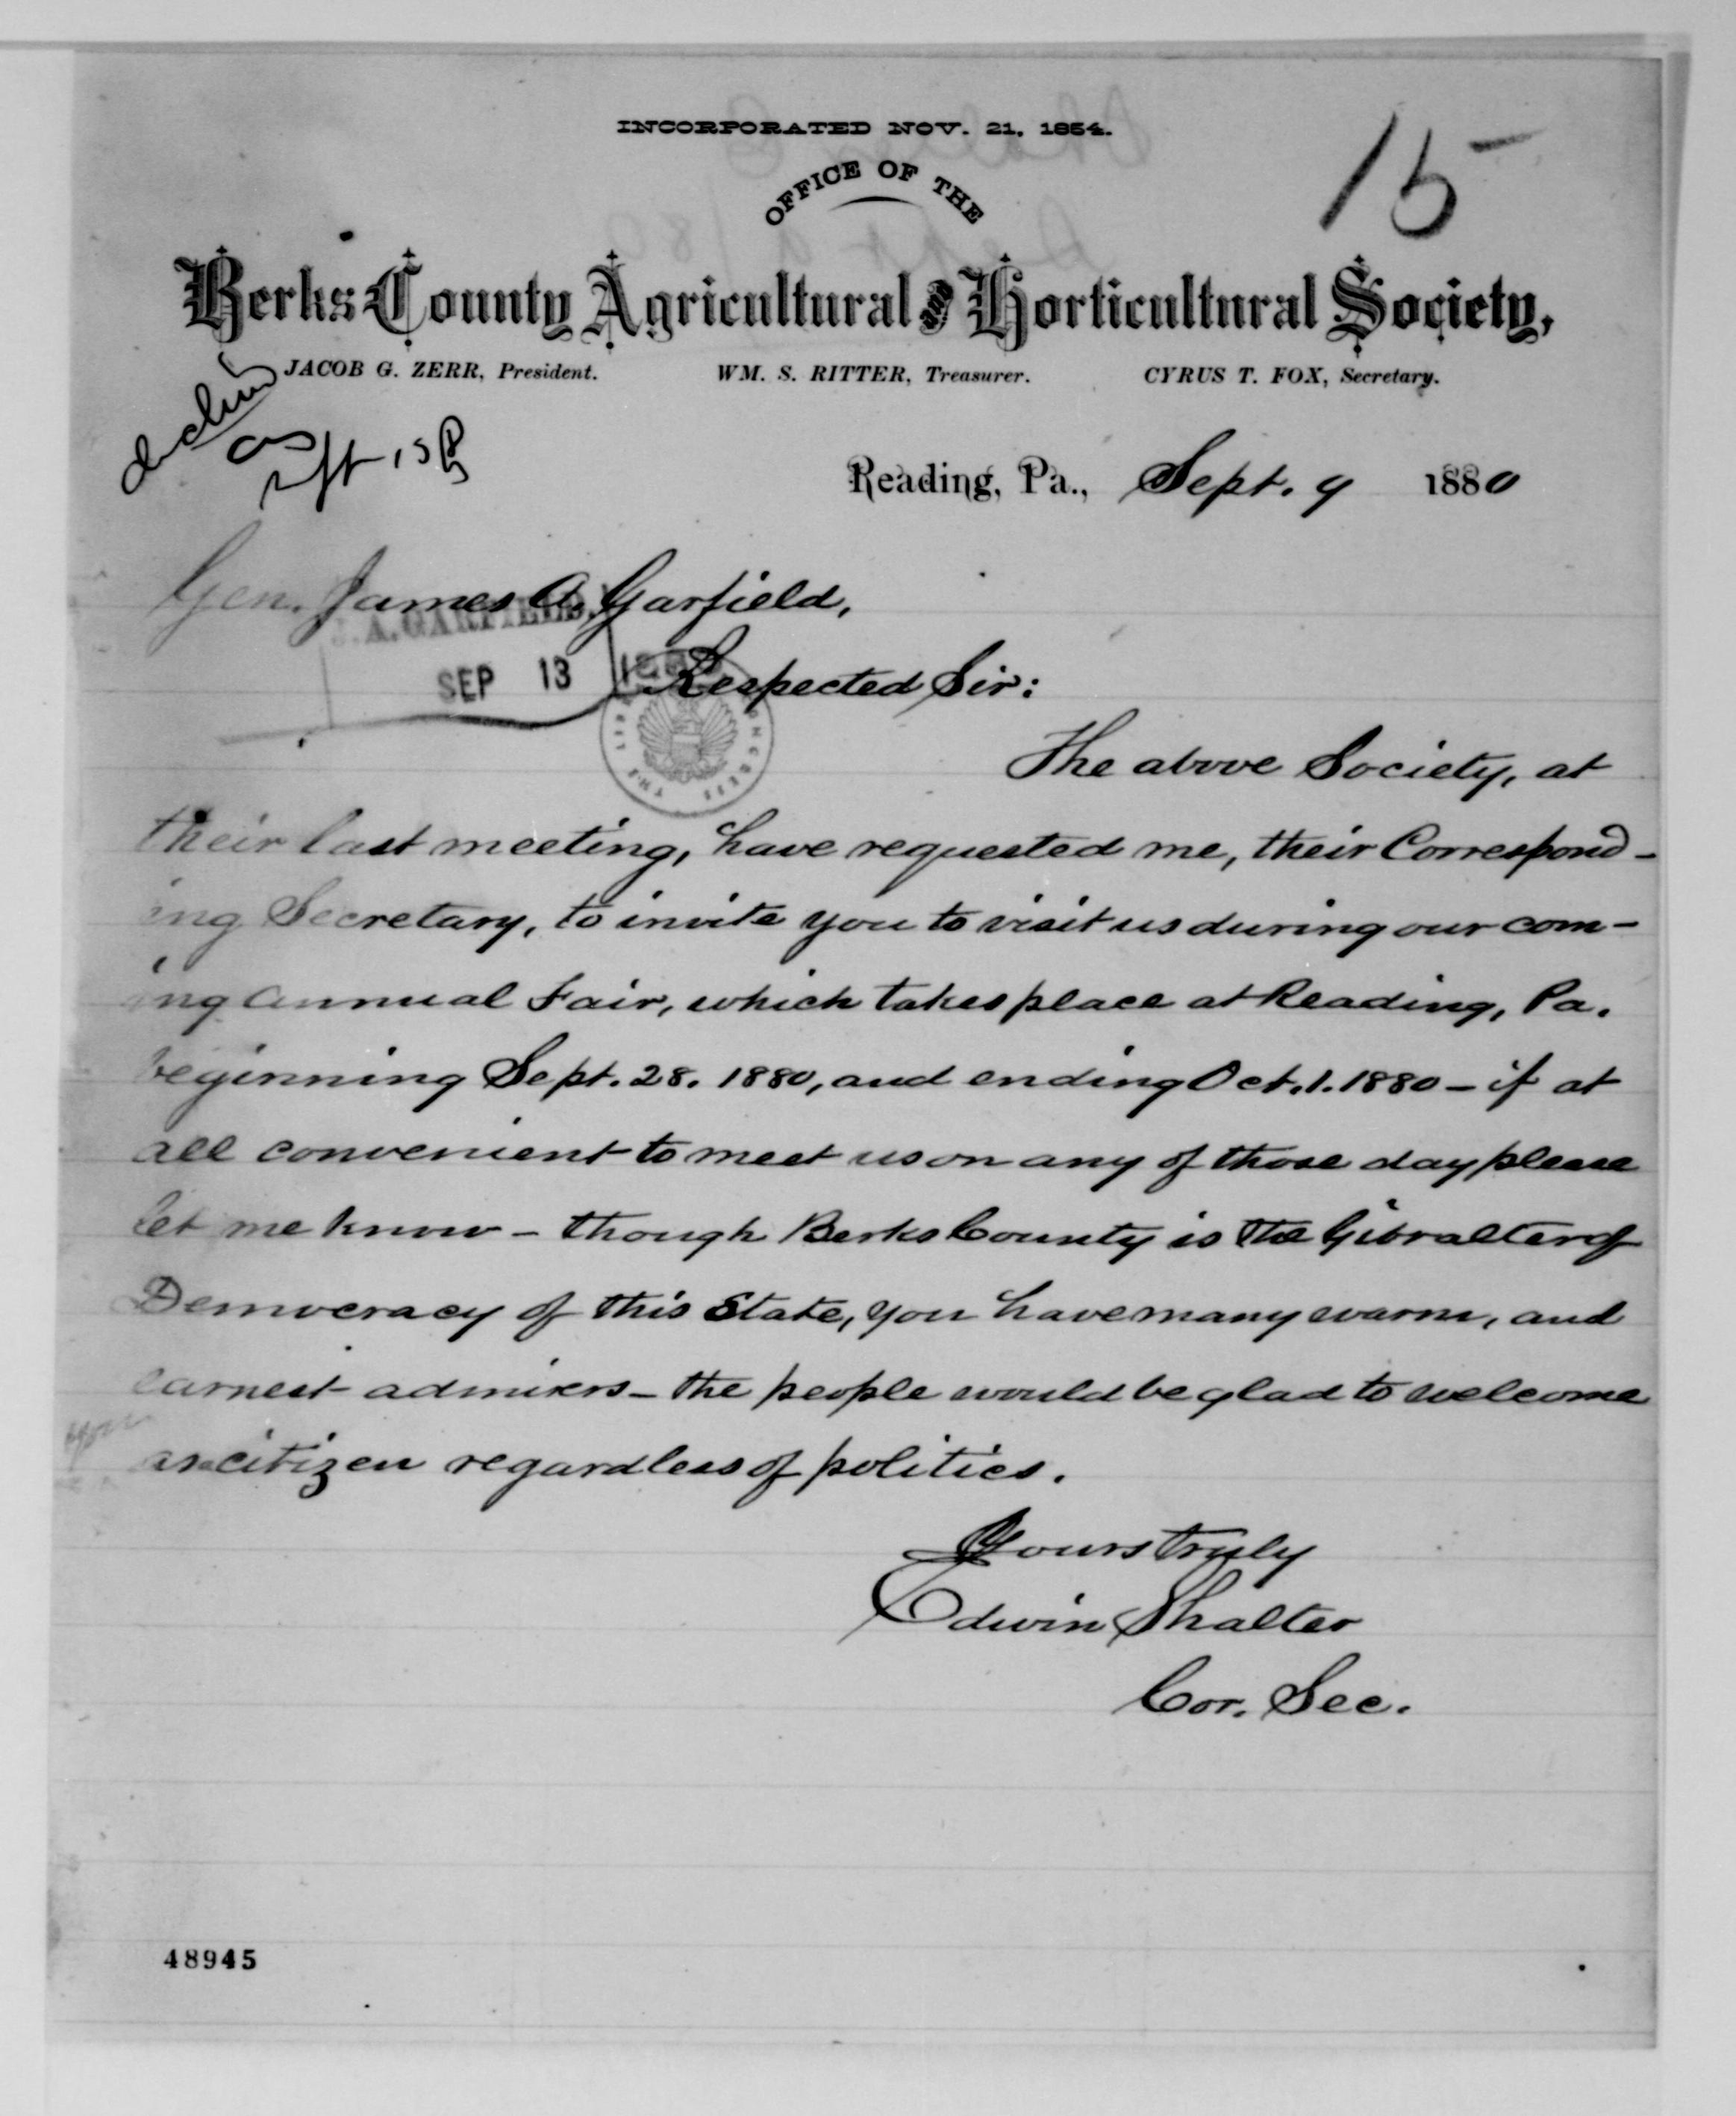 INCORPORATED NOV. 21, 1854.
15
OFFICE OF THE
Berks County Agricultural and Horticultural Society,
JACOB G. ZERR, President. WM. S. RITTER, Treasurer. CYRUS T. FOX, Secretary.
Sept 15
Reading, Pa., Sept. 9 1880
Gen. James A. Garfield,
J. A. GARFIELD.
SEP 13 1880
Respected Sir:
The above Society, at
their last meeting, have requested me, their Correspond-
ing Secretary, to invite you to visit us during our com-
ing Annual Fair, which takes place at Reading, Pa.
beginning Sept. 28. 1880, and ending Oct. 1. 1880 – if at
all convenient to meet us on any of those day please
let me know – though Berks County is the Gibralter of
Democracy of this State, you have many warm, and
earnest admirers – the people would be glad to welcome
you as citizen regardless of politics.
Yours truly
Edwin Shalter
Cor. Sec.
48945